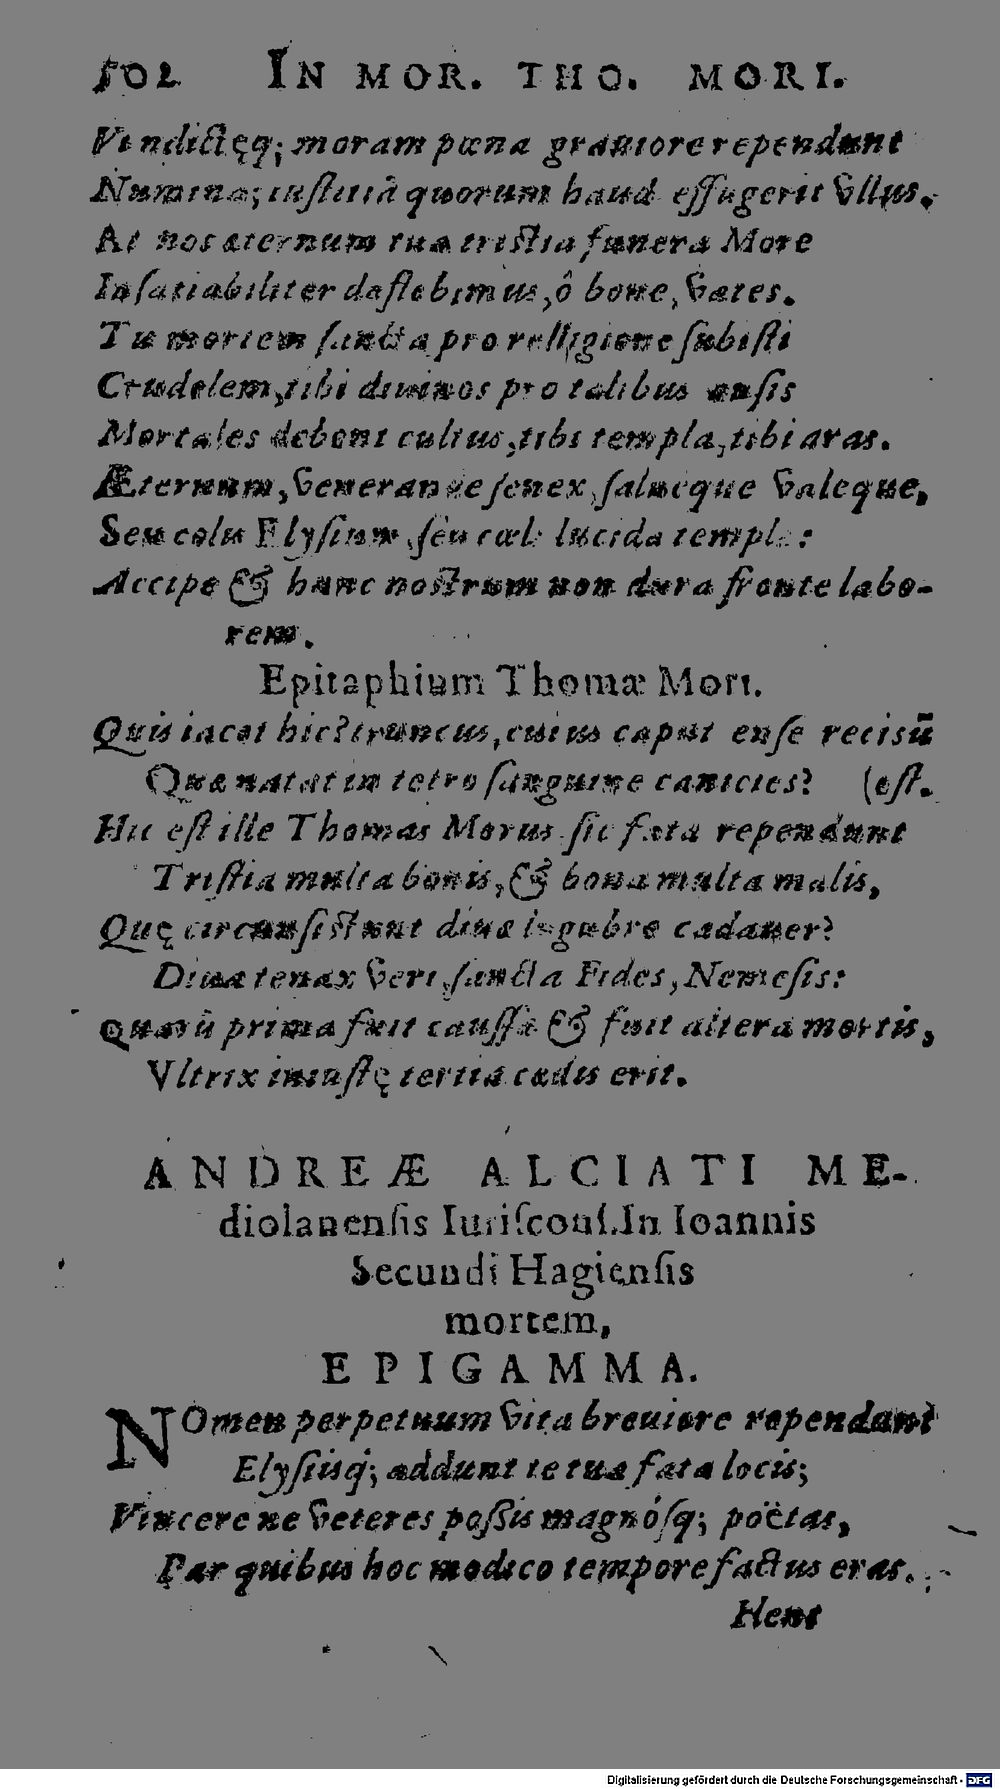 502 IN MOR. THO. MORI.
Vindictęq; moram pœna grauiore rependunt
Numina; iustitiã quorum haud effugerit vllus.
At nos æternum tua tristia funera More
Insatiabiliter deflebimus, ô bone, vates.
Tu mortem sancta pro relligione subisti
Crudelem, tibi diuinos pro talibus ausis
Mortales debent cultus, tibi templa, tibi aras.
Æternum, venerande senex, salueque valeque,
Seu colis Elysium, seu cœli lucida templa:
Accipe & hunc nostrum non dura fronte labo-
rem.
Epitaphium Thomæ Mori.
Quis iacet hic? truncus, cuius caput ense recisũ
Quæ natat in tetro sanguine canicies? (est.
Hic est ille Thomas Morus. sic fata rependunt
Tristia multa bonis, & bona multa malis,
Quę circunsistunt diuæ lugubre cadauer?
Diua tenax veri, sancta Fides, Nemesis:
Quarũ prima fuit caussa & fuit altera mortis,
Vltrix iniustę tertia cædis erit.
ANDREÆ ALCIATI ME-
diolanensis Iurisconſ. In Ioannis
Secundi Hagiensis
mortem,
EPIGAMMA.
NOmen perpetuum vita breuiore rependant
Elysiisq́; addunt te tua fata locis;
Vincere ne veteres possis magnósq; poëtas,
Par quibus hoc modico tempore factus eras.
Heut
Digitalisierung gefördert durch die Deutsche Forschungsgemeinschaft - DFG